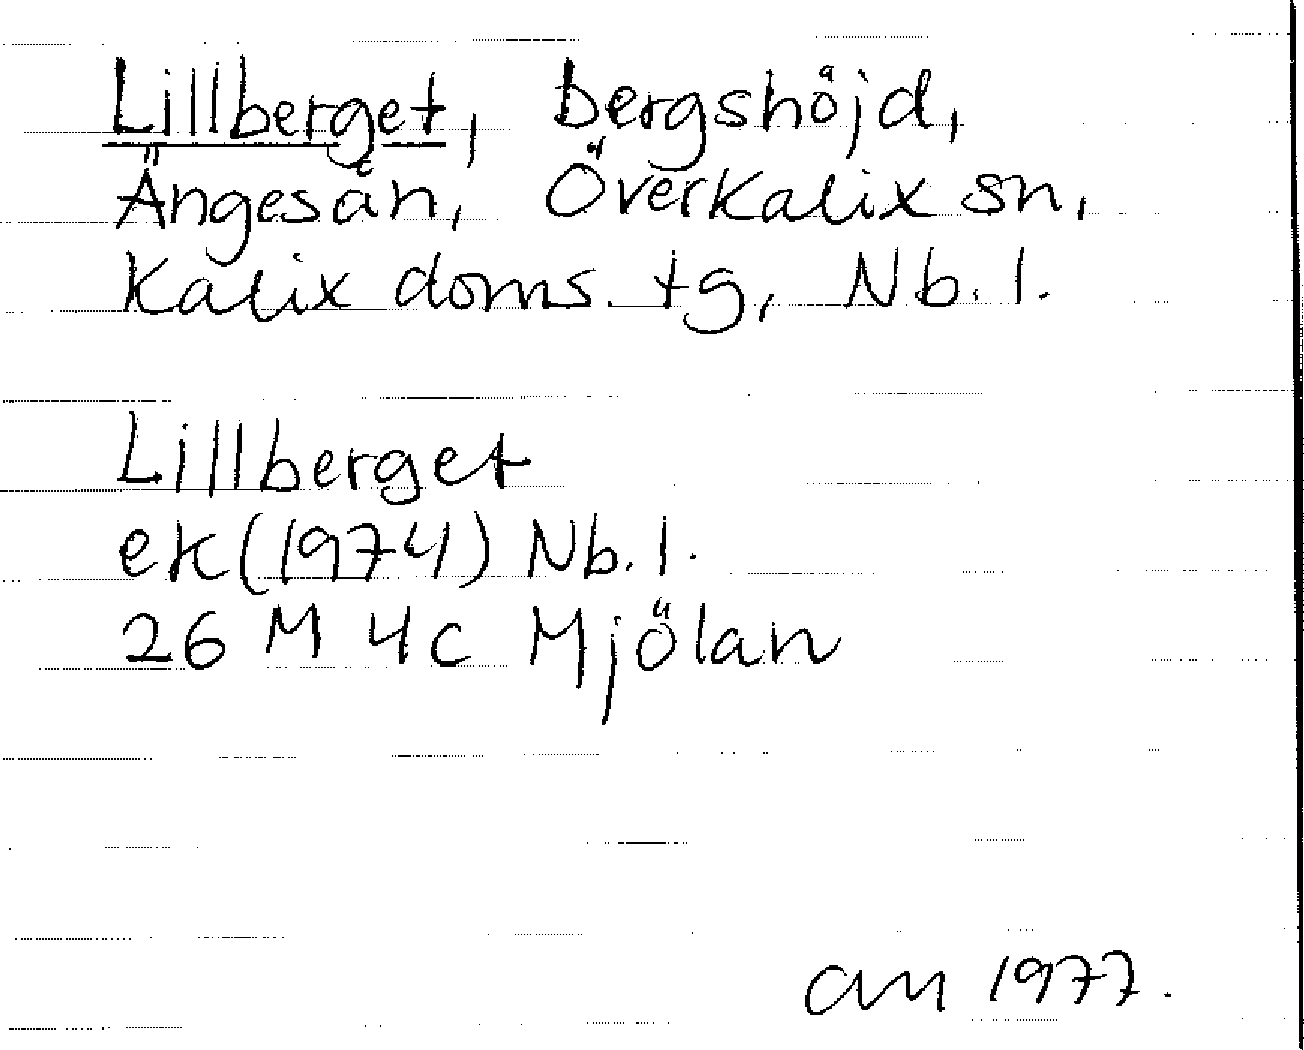 Lillberget, bergshöjd,
Ängesån, Överkalix sn,
Kalix doms. tg, Nb. l.
Lillberget
ek (1974) Nb. l.
26 M 4c Mjölan
1977.